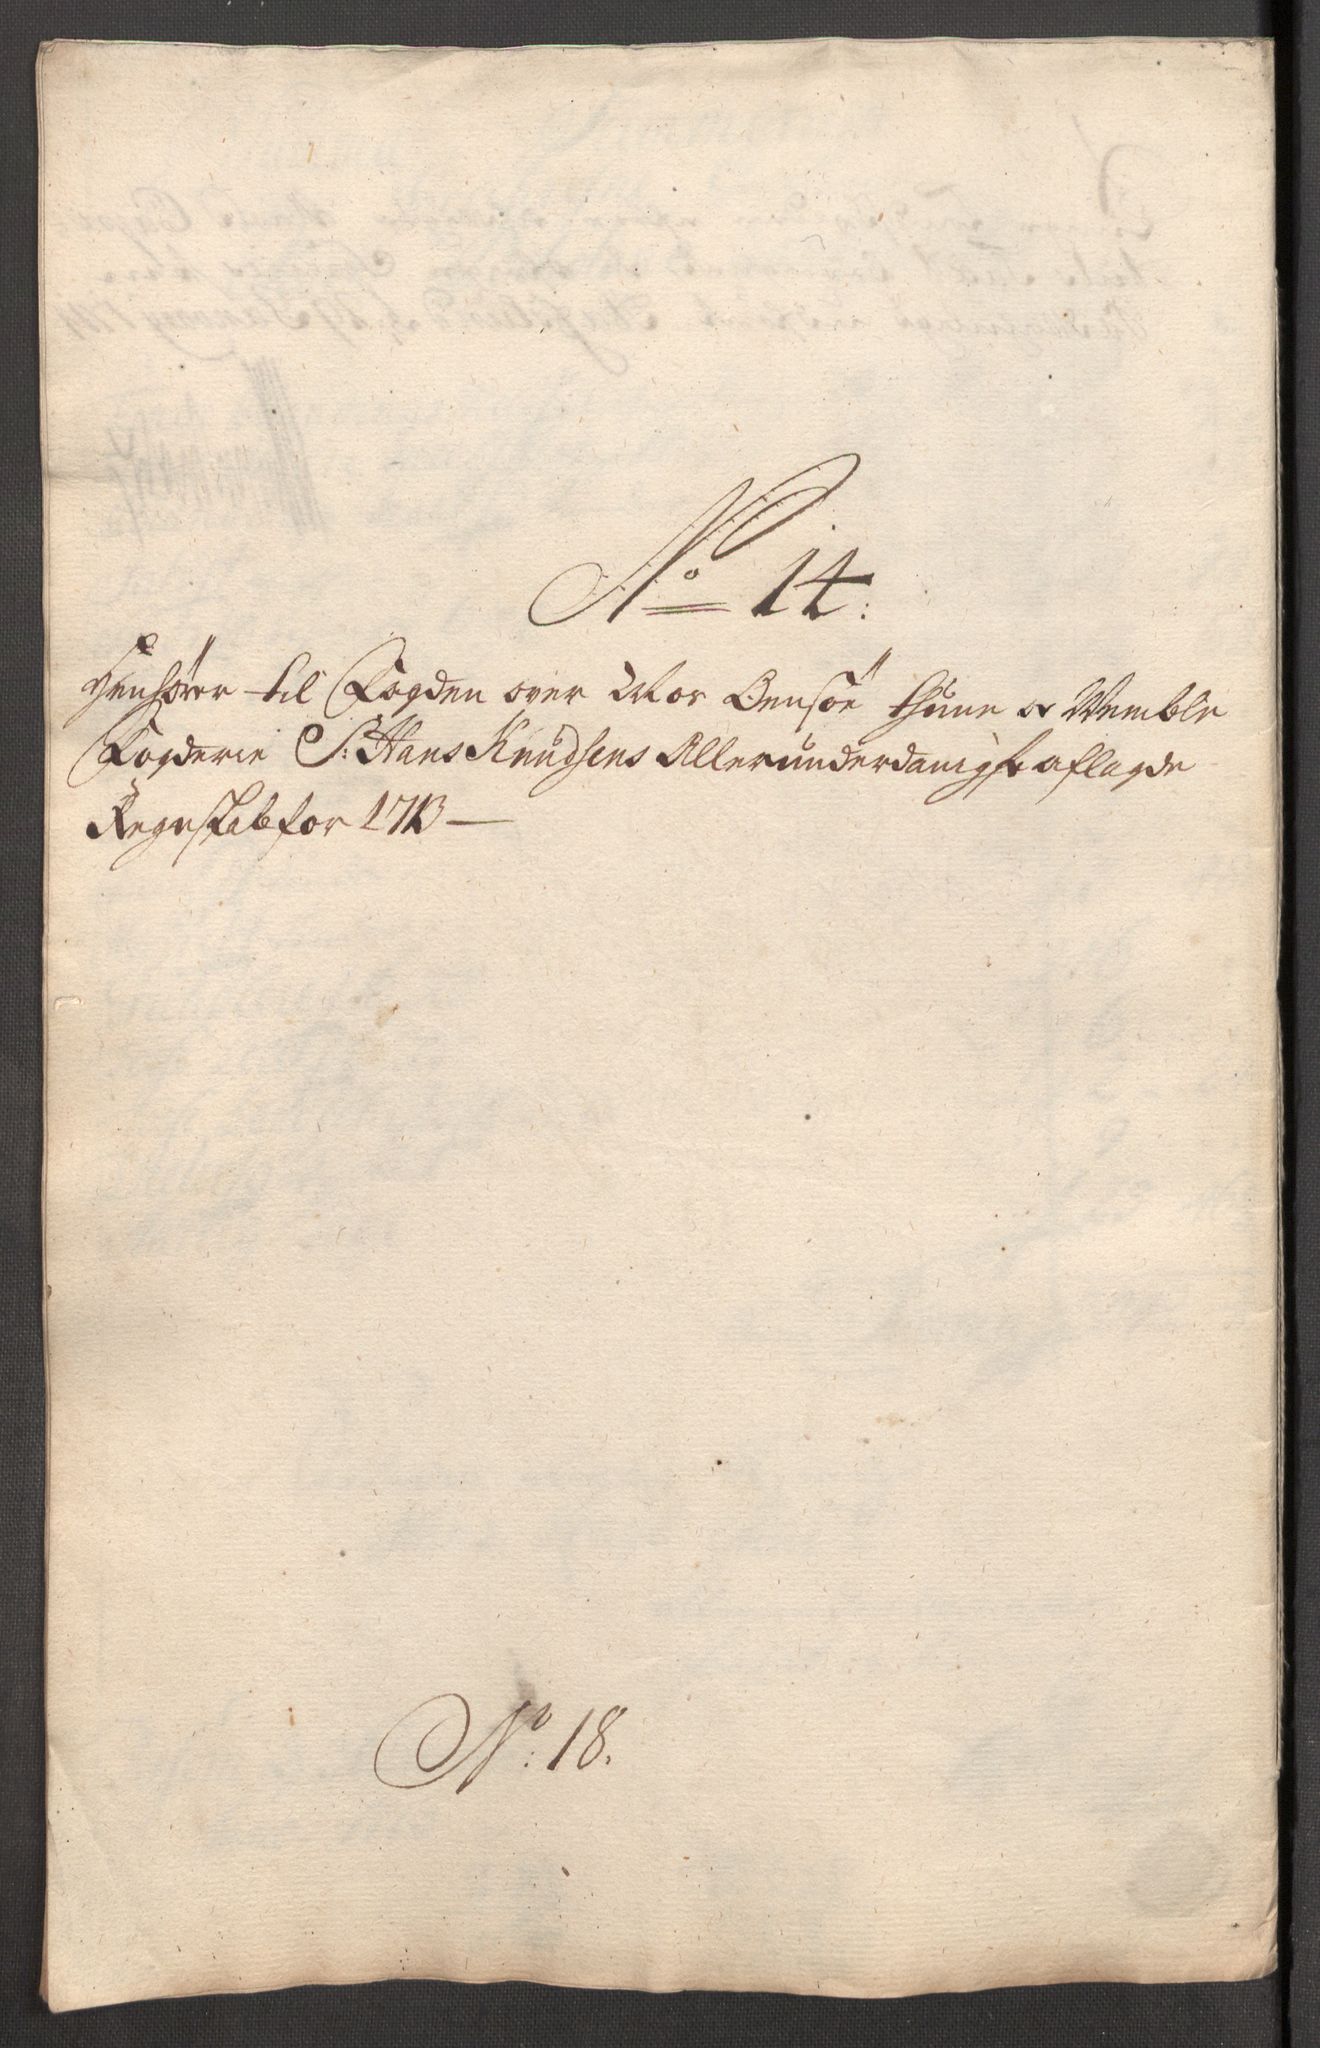 No 14:
Henhörer til Fogden over Moss Oensöe thune og Wemble
Fogderie S: Hans Knudsens Allerunderdanigst aflagde
Regnskab for 1713
No: 18.